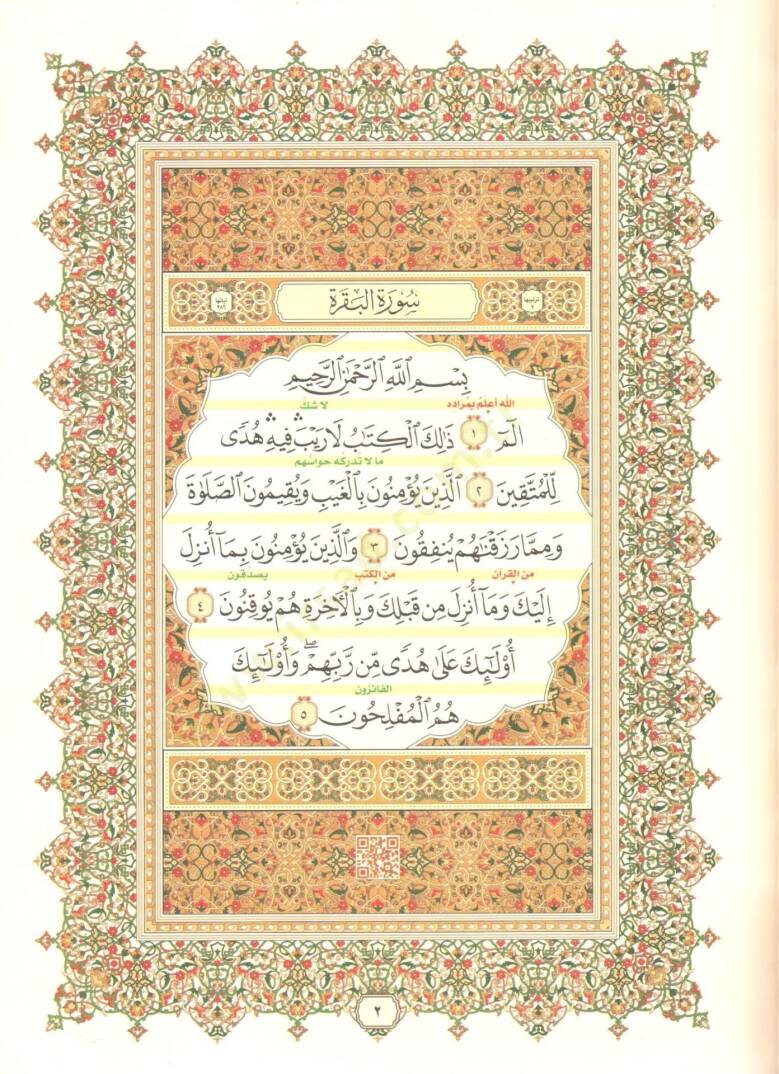 ترتيبها ٢
سُورَةُ البَقَرَةِ
آياتها ٢٨٦
بِسْمِ ٱللَّهِ ٱلرَّحْمَٰنِ ٱلرَّحِيمِ
الله أعلم بمراده لا شك
الٓمٓ ١ ذَٰلِكَ ٱلْكِتَٰبُ لَا رَيْبَ ۛ فِيهِ ۛ هُدًى
ما لا تدركه حواسهم
لِّلْمُتَّقِينَ ٢ ٱلَّذِينَ يُؤْمِنُونَ بِٱلْغَيْبِ وَيُقِيمُونَ ٱلصَّلَوٰةَ
وَمِمَّا رَزَقْنَٰهُمْ يُنفِقُونَ ٣ وَٱلَّذِينَ يُؤْمِنُونَ بِمَآ أُنزِلَ
من القرآن من الكتب يصدقون
إِلَيْكَ وَمَآ أُنزِلَ مِن قَبْلِكَ وَبِٱلْأَخِرَةِ هُمْ يُوقِنُونَ ٤
أُو۟لَٰٓئِكَ عَلَىٰ هُدًى مِّن رَّبِّهِمْ ۖ وَأُو۟لَٰٓئِكَ
الفائزون
هُمُ ٱلْمُفْلِحُونَ ٥
٢